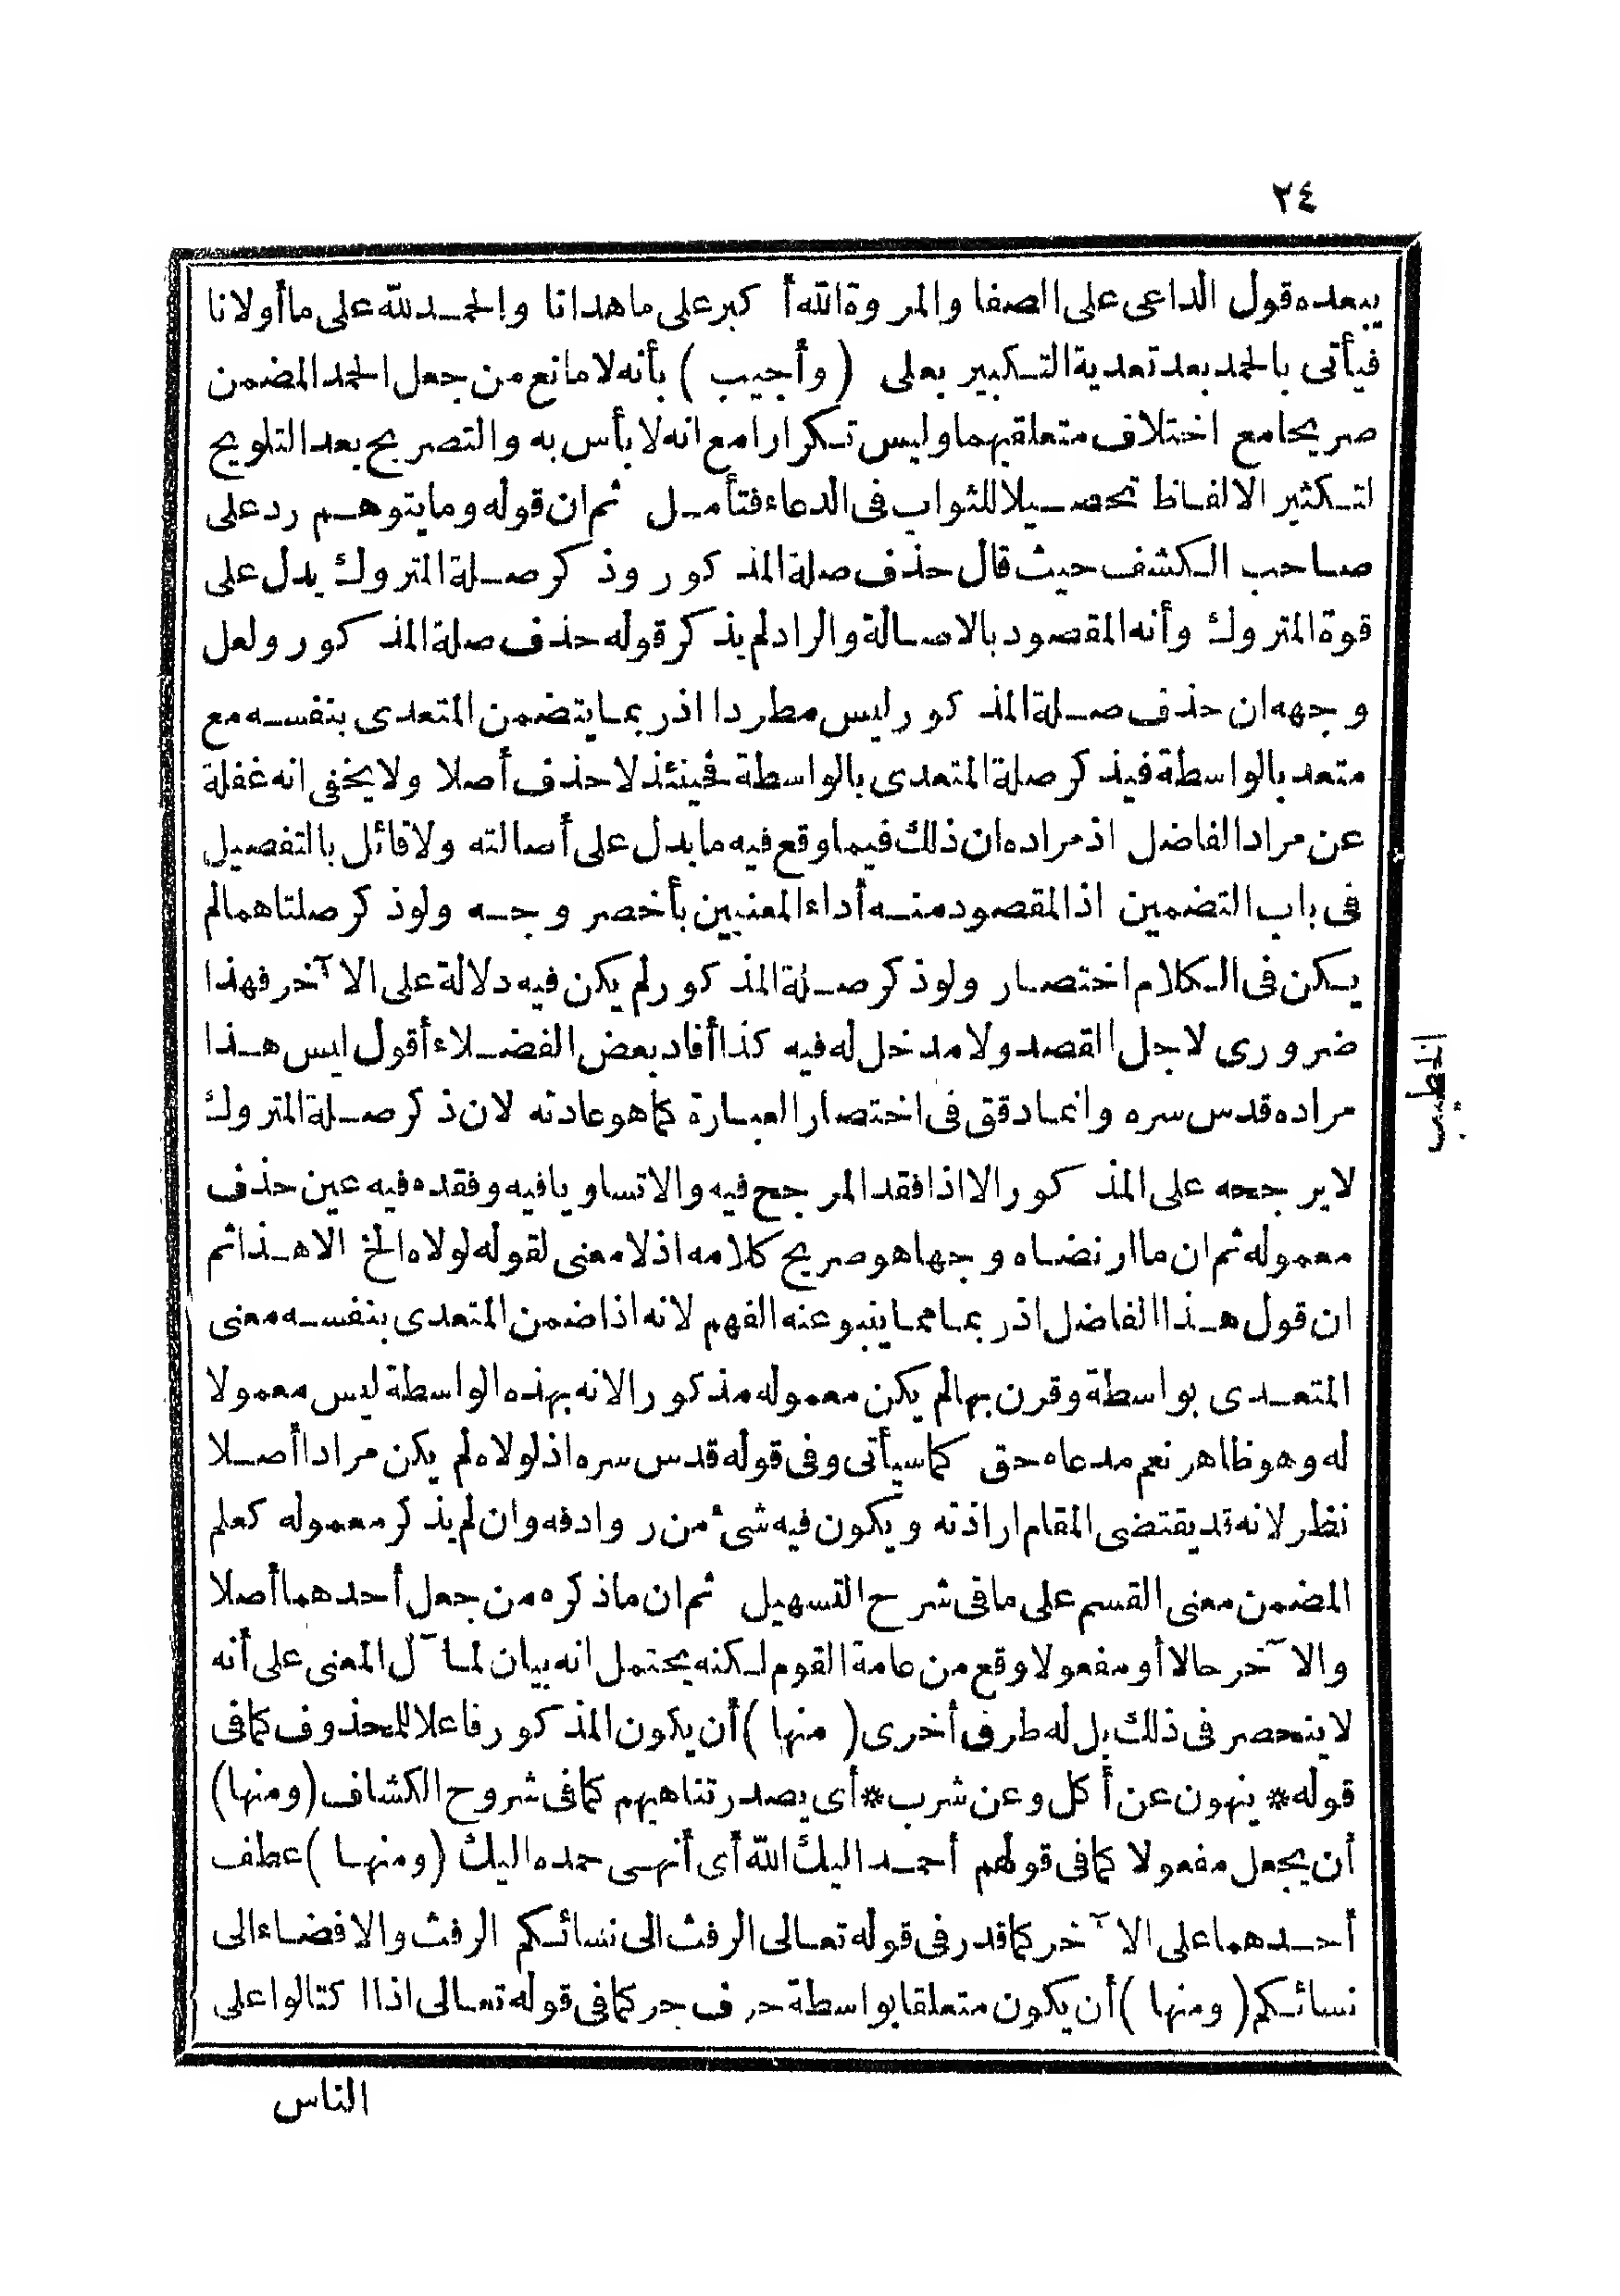 ٢٤
يبعده قول الداعى على الصفا والمروة الله أكبر على ما هدانا والحمد لله على ما أولانا
فيأتى بالحمد بعد تعدية التكبير بعلى (وأجيب) بأنه لا مانع من جعل الحمد المضمن
صريحا مع اختلاف متعلقيهما وليس تكرارا مع انه لا بأس به والتصريح بعد التلويح
لتكثير الالفاظ تحصيلا للثواب فى الدعاء فتأمل ثم ان قوله وما يتوهم رد على
صاحب الكشف حيث قال حذف صلة المذكور وذكر صلة المتروك يدل على
قوة المتروك وأنه المقصود بالاصالة والراد لم يذكر قوله حذف صلة المذكور ولعل
وجهه ان حذف صلة المذكور ليس مطردا اذ ربما يتضمن المتعدى بنفسه مع
متعد بالواسطة فيذكر صلة المتعدى بالواسطة فحينئذ لا حذف أصلا ولا يخفى انه غفلة
عن مراد الفاضل اذ مراده ان ذلك فيما وقع فيه ما يدل على أصالته ولا قائل بالتفصيل
فى باب التضمين اذ المقصود منه أداء المعنيين بأخصر وجه ولو ذكر صلتاهما لم
يكن فى الكلام اختصار ولو ذكر صلة المذكور لم يكن فيه دلالة على الآخر فهذا
ضرورى لاجل القصد ولا مدخل له فيه كذا أفاد بعض الفضلاء أقول ليس هذا
مراده قدس سره وانما دقق فى اختصار العبارة كما هو عادته لان ذكر صلة المتروك
لا يرجحه على المذكور الا اذا فقد المرجح فيه والا تساويا فيه وفقده فيه عين حذف
معموله ثم ان ما ارتضاه وجها هو صريح كلامه اذ لا معنى لقوله لولاه الخ الا هذا ثم
ان قول هذا الفاضل اذ ربما مما ينبو عنه الفهم لانه اذا ضمن المتعدى بنفسه معنى
المتعدى بواسطة وقرن بها لم يكن معموله مذكورا لانه بهذه الواسطة ليس معمولا
له وهو ظاهر نعم مدعاه حق كما سيأتى وفى قوله قدس سره اذ لولاه لم يكن مرادا أصلا
نظر لانه قد يقتضى المقام ارادته ويكون فيه شئ من روادفه وان لم يذكر معموله كعلم
المضمن معنى القسم على ما فى شرح التسهيل ثم ان ما ذكره من جعل أحدهما أصلا
والآخر حالا أو مفعولا وقع من عامة القوم لكنه يحتمل انه بيان لمآل المعنى على أنه
لا ينحصر فى ذلك بل له طرق أخرى (منها) أن يكون المذكور فاعلا للمحذوف كما فى
قوله * ينهون عن أكل وعن شرب * أى يصدر تناهيهم كما فى شروح الكشاف (ومنها)
أن يجعل مفعولا كما فى قولهم أحمد اليك الله أى أنهى حمده اليك (ومنها) عطف
أحدهما على الآخر كما قدر فى قوله تعالى الرفث الى نسائكم الرفث والافضاء الى
نسائكم (ومنها) أن يكون متعلقا بواسطة حرف جر كما فى قوله تعالى اذا اكتالوا على
الناس
الخطيب